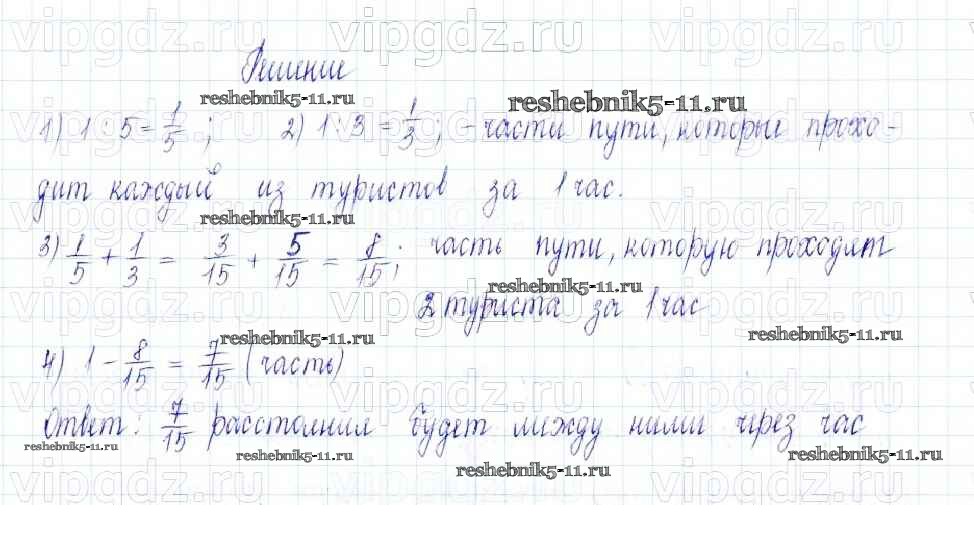 vipgdz.ru vipgdz.ru vipgdz.ru
Решение
reshebnik5-11.ru reshebnik5-11.ru
1) 1 : 5 = 1/5 ; 2) 1 : 3 = 1/3 ; - части пути, которые прохо-
дит каждый из туристов за 1 час.
reshebnik5-11.ru
3) 1/5 + 1/3 = 3/15 + 5/15 = 8/15 ; часть пути, которую проходят
reshebnik5-11.ru
2 туриста за 1 час
reshebnik5-11.ru reshebnik5-11.ru
4) 1 - 8/15 = 7/15 (часть)
Ответ: 7/15 расстояния будет между ними через час
reshebnik5-11.ru reshebnik5-11.ru reshebnik5-11.ru reshebnik5-11.ru
vipgdz.ru vipgdz.ru vipgdz.ru